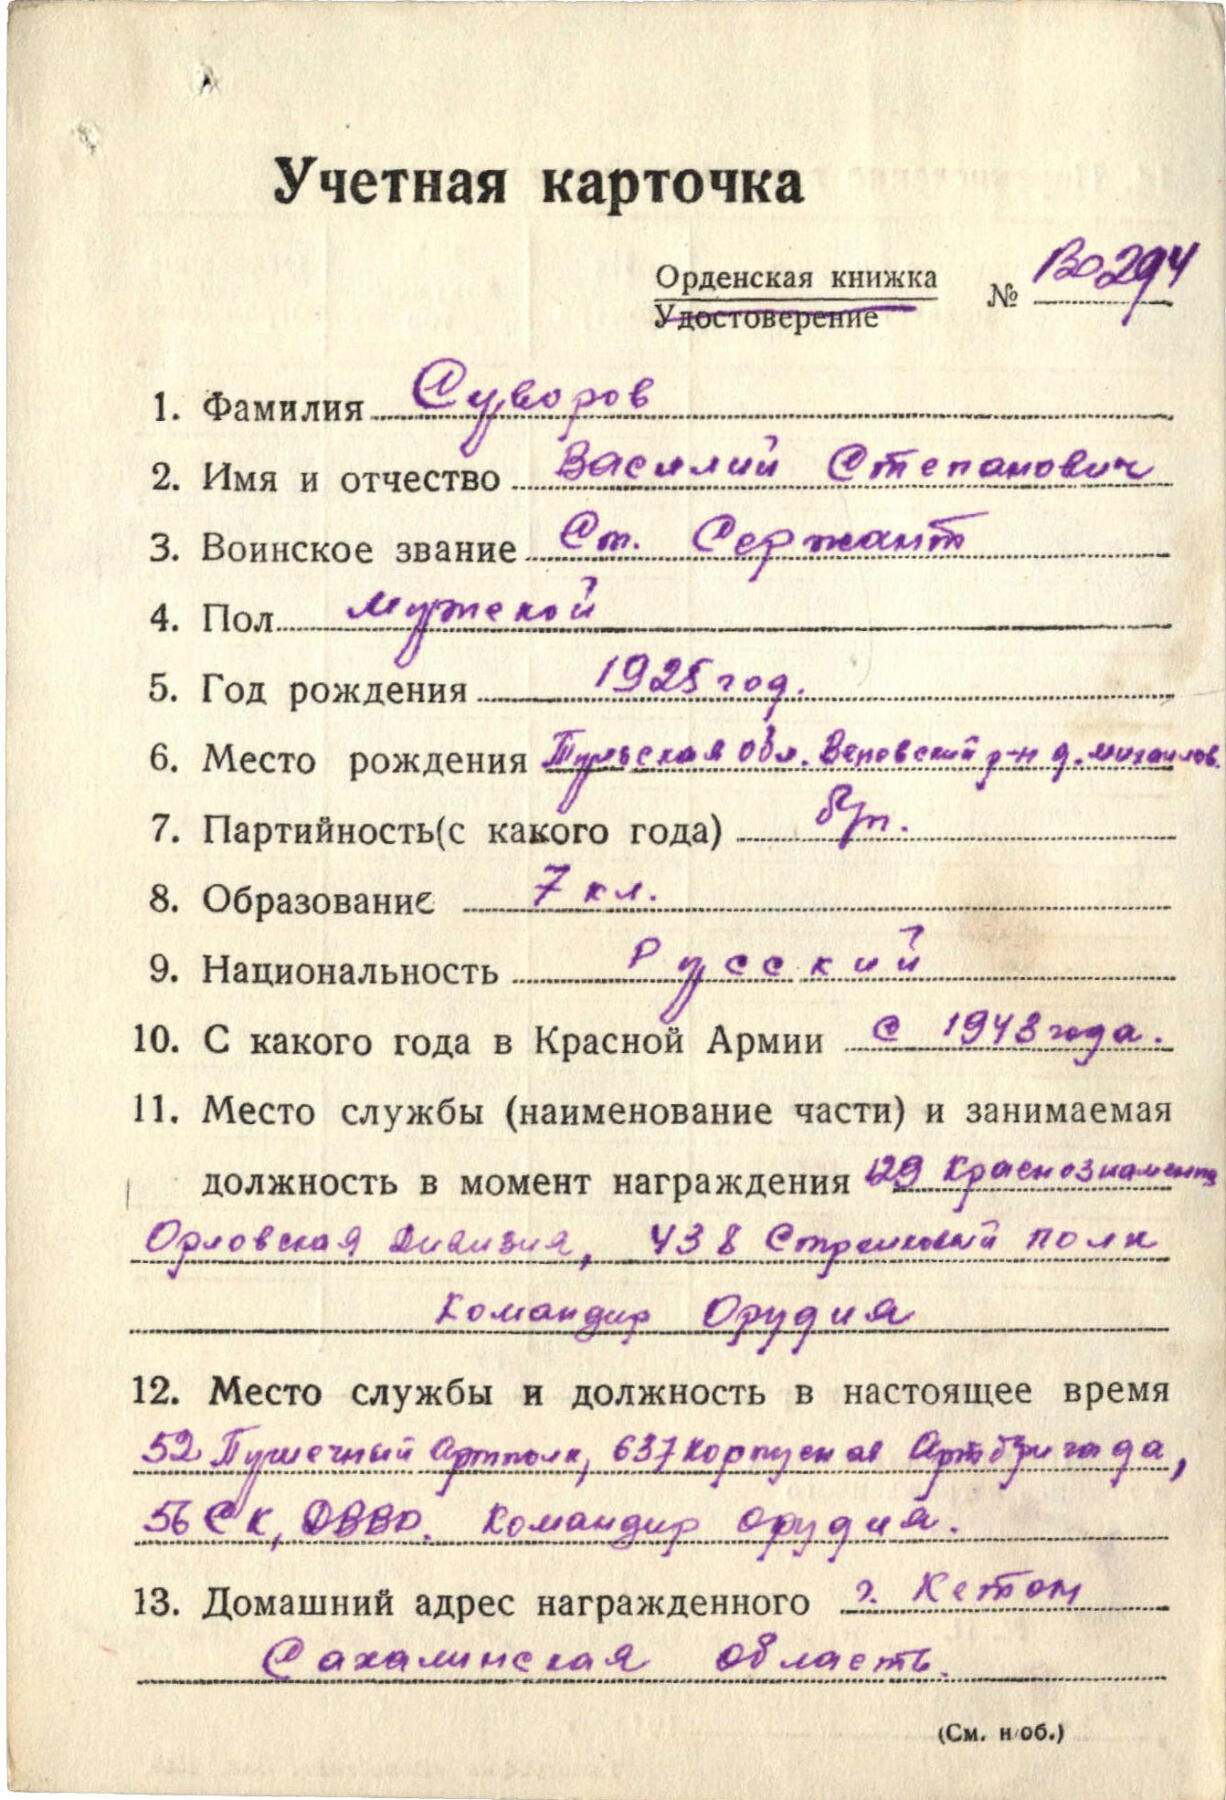 Учетная карточка
Орденская книжка № В0294
Удостоверение
1. Фамилия Суворов
2. Имя и отчество Василий Степанович
3. Воинское звание Ст. Сержант
4. Пол мужской
5. Год рождения 1925 год.
6. Место рождения Тульская обл. Веневский р-н д. Михайлов.
7. Партийность(с какого года) б/п.
8. Образование 7 кл.
9. Национальность Русский
10. С какого года в Красной Армии с 1943 года.
11. Место службы (наименование части) и занимаемая
должность в момент награждения 129 Краснознаменная
Орловская Дивизия, 438 Стрелковый полк
Командир Орудия
12. Место службы и должность в настоящее время
52 Пушечный Артполк, 637 Корпусная Артбригада,
56 СК, ДВВО. Командир орудия.
13. Домашний адрес награжденного г. Кетон
Сахалинская область.
(См. н/об.)